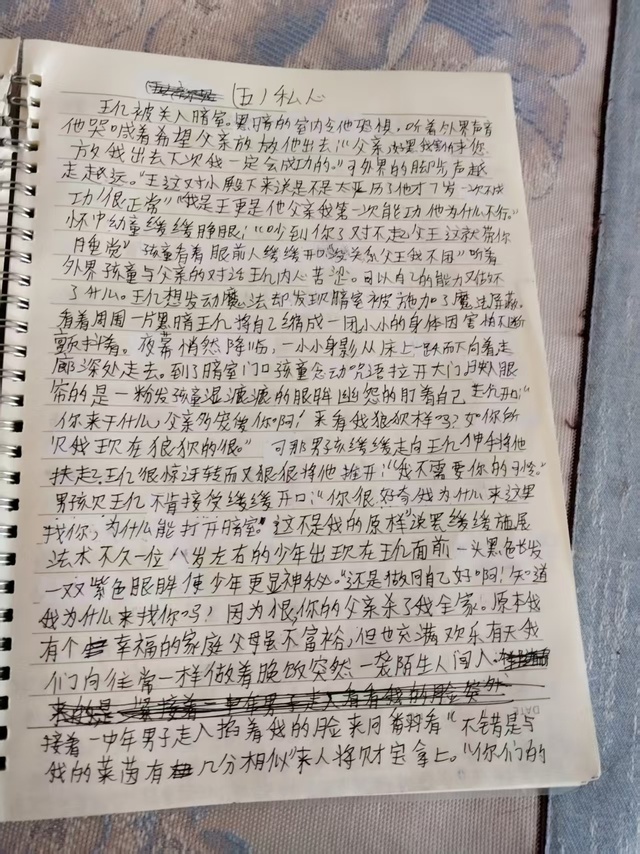 (五) 私心
王亿被关入暗室。黑暗的室内令他恐惧，听着外界声音
他哭喊着希望父亲放他出去："父亲
放我出去下次我一定会成功的。"可外界的脚步声越
走越远。"王这对小殿下来说是不是太严厉了他才7岁一次不成
功很正常""我是王更是他父亲我第一次能功他为什么不行。"
怀中幼童缓缓睁眼："吵到你了对不起父王这就带你
睡觉"孩童看着眼前人缓缓开口"没关系父王我不困"听着
外界孩童与父亲的对话王亿内心苦涩。可以自己的能力又做不
了什么。王亿想发动魔法却发现暗室被施加了魔法屏蔽。
看着周围一片黑暗王亿将自己缩成一团小小的身体因害怕不断
颤抖着。夜幕悄然降临，一小小身影从床上一跃而下向着走
廊深处走去。到了暗室门口孩童念动咒语拉开大门映入眼
帘的是一粉发孩童湿漉漉的眼眸幽怨的盯着自己。
"你来干什么，父亲多宠你啊！来看我狼狈样吗？如你所
见我现在狼狈的很。"可那男孩缓缓走向王亿伸手将他
扶起王亿很惊讶转而又狠狠将他推开："我不需要你的
男孩见王亿不肯接受缓缓开口："你很好奇我为什么来这里
找你，为什么能打开暗室。这不是我的原样"说罢缓缓施展
法术不久一位八岁左右的少年出现在王亿面前一头黑色长发
一双紫色眼眸使少年更显神秘。"还是做回自己好啊！知道
我为什么来找你吗？因为恨，你的父亲杀了我全家。原本我
有个幸福的家庭父母虽不富裕，但也充满欢乐有天我
们向往常一样做着晚饭突然一袭陌生人闯入
接着一中年男子走入掐着我的脸来回看"不错是与
我的莱茵有几分相似"来人将财宝拿上。"你们的